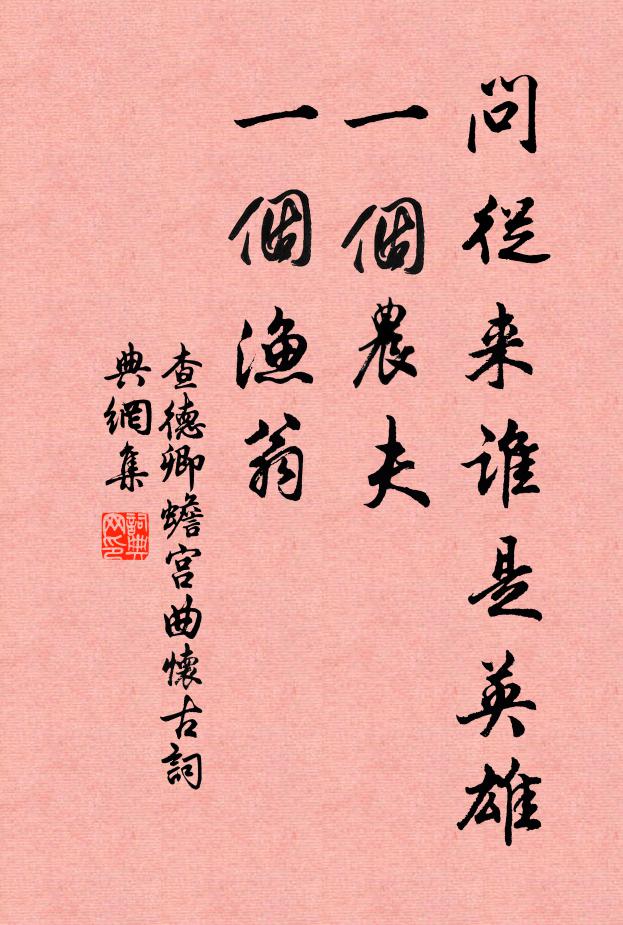 問從来誰是英雄
一個農夫
一個漁翁
查德卿蟾宮曲懷古詞
典網集
詞典网印